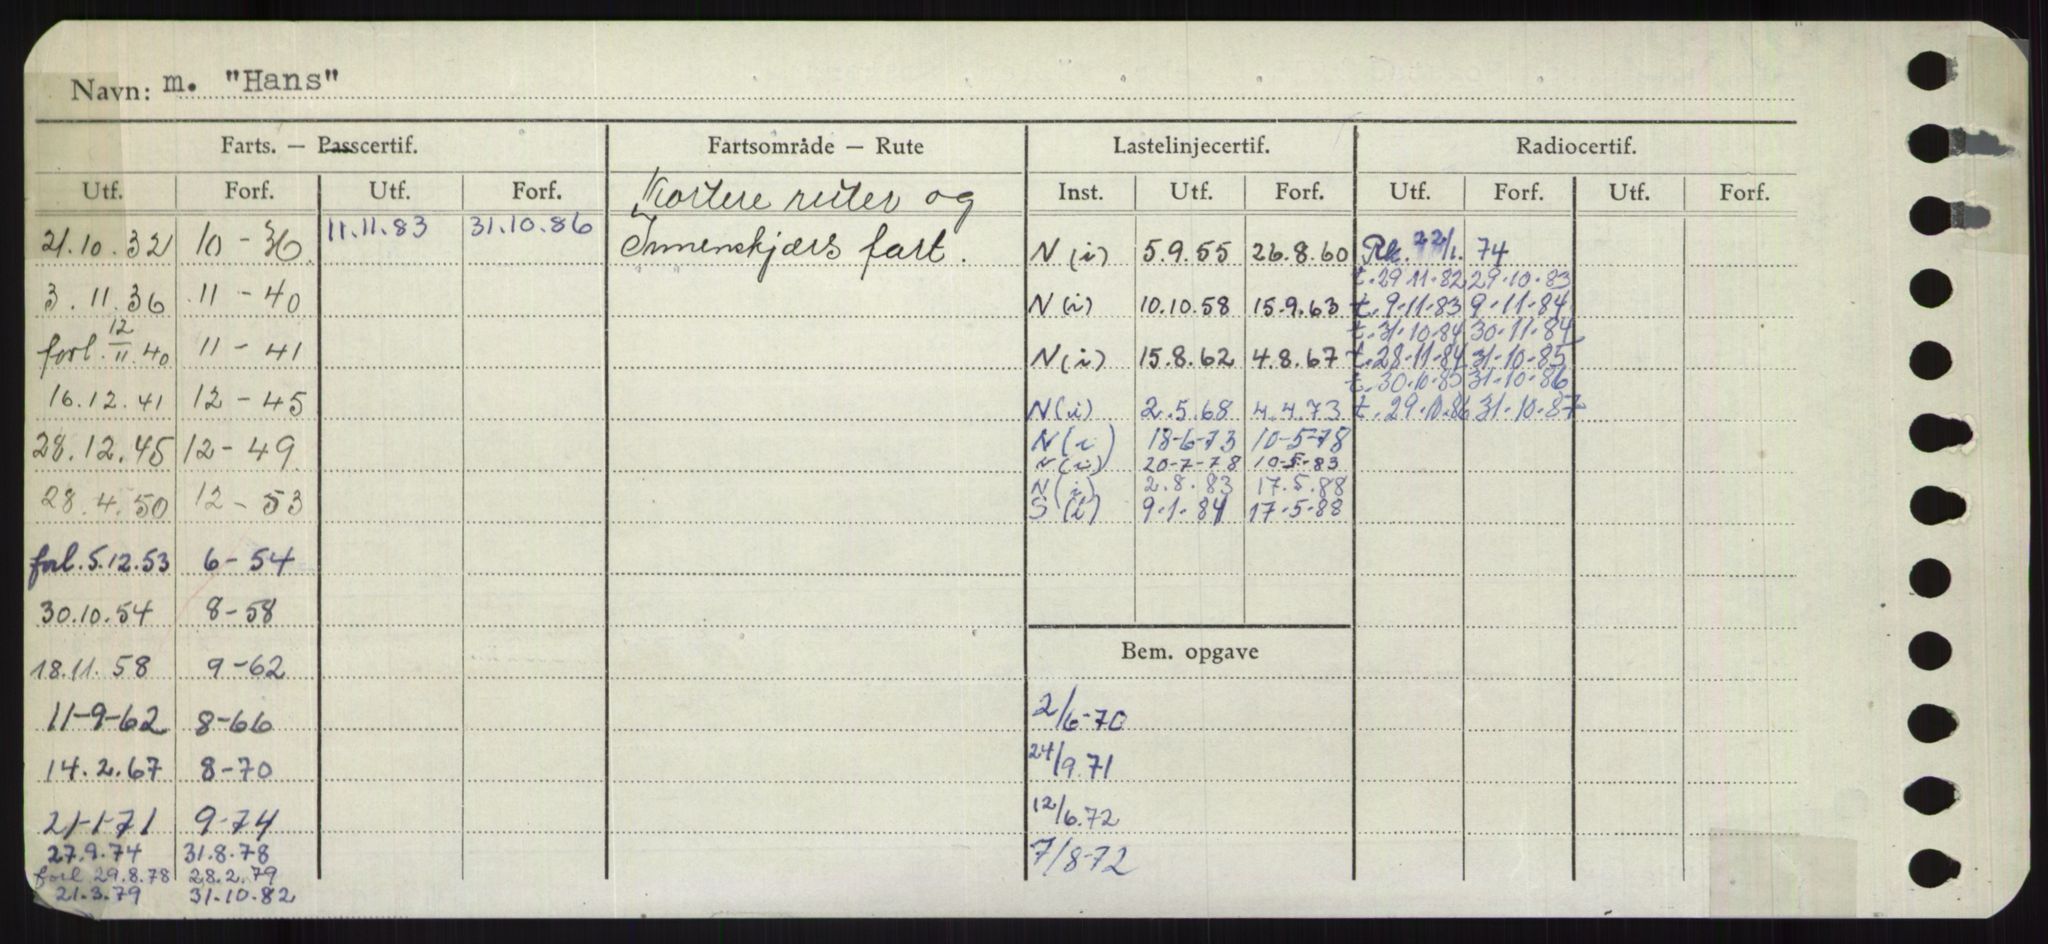 Navn: m. "Hans"
Farts. — Passcertif. Fartsområde — Rute Lastelinjecertif. Radiocertif.
Utf. Forf. Utf. Forf. Kortere ruter og Inst. Utf. Forf. Utf. Forf. Utf. Forf.
21.10.32 10-36 11.11.83 31.10.86 Innenskjærs fart. N(i) 5.9.55 26.8.60 Rk. 22/1. 74
t.29.11.82 29.10.83
3.11.36 11-40 N(i) 10.10.58 15.9.63 t.9.11.83 9.11.84
t.31.10.84 30.11.84
forl. 12/11.40 11-41 N(i) 15.8.62 4.8.67 t.28.11.84 31.10.85
t.30.10.85 31.10.86
16.12.41 12-45 N(i) 2.5.68 4.4.73 t.29.10.86 31.10.87
28.12.45 12-49 N(i) 18-6-73 10-5-78
N(i) 20-7-78 10-5-83
28.4.50 12-53 N(i) 2.8.83 17.5.88
S(i) 9.1.84 17-5-88
forl.5.12.53 6-54
30.10.54 8-58
18.11.58 9-62 Bem. opgave
11-9-62 8-66 2/6-70
14.2.67 8-70 24/9.71
21-1-71 9-74 12/6.72
27.9.74 31.8.78 7/8-72
forl 29.8.78 28.2.79
21.3.79 31.10.82